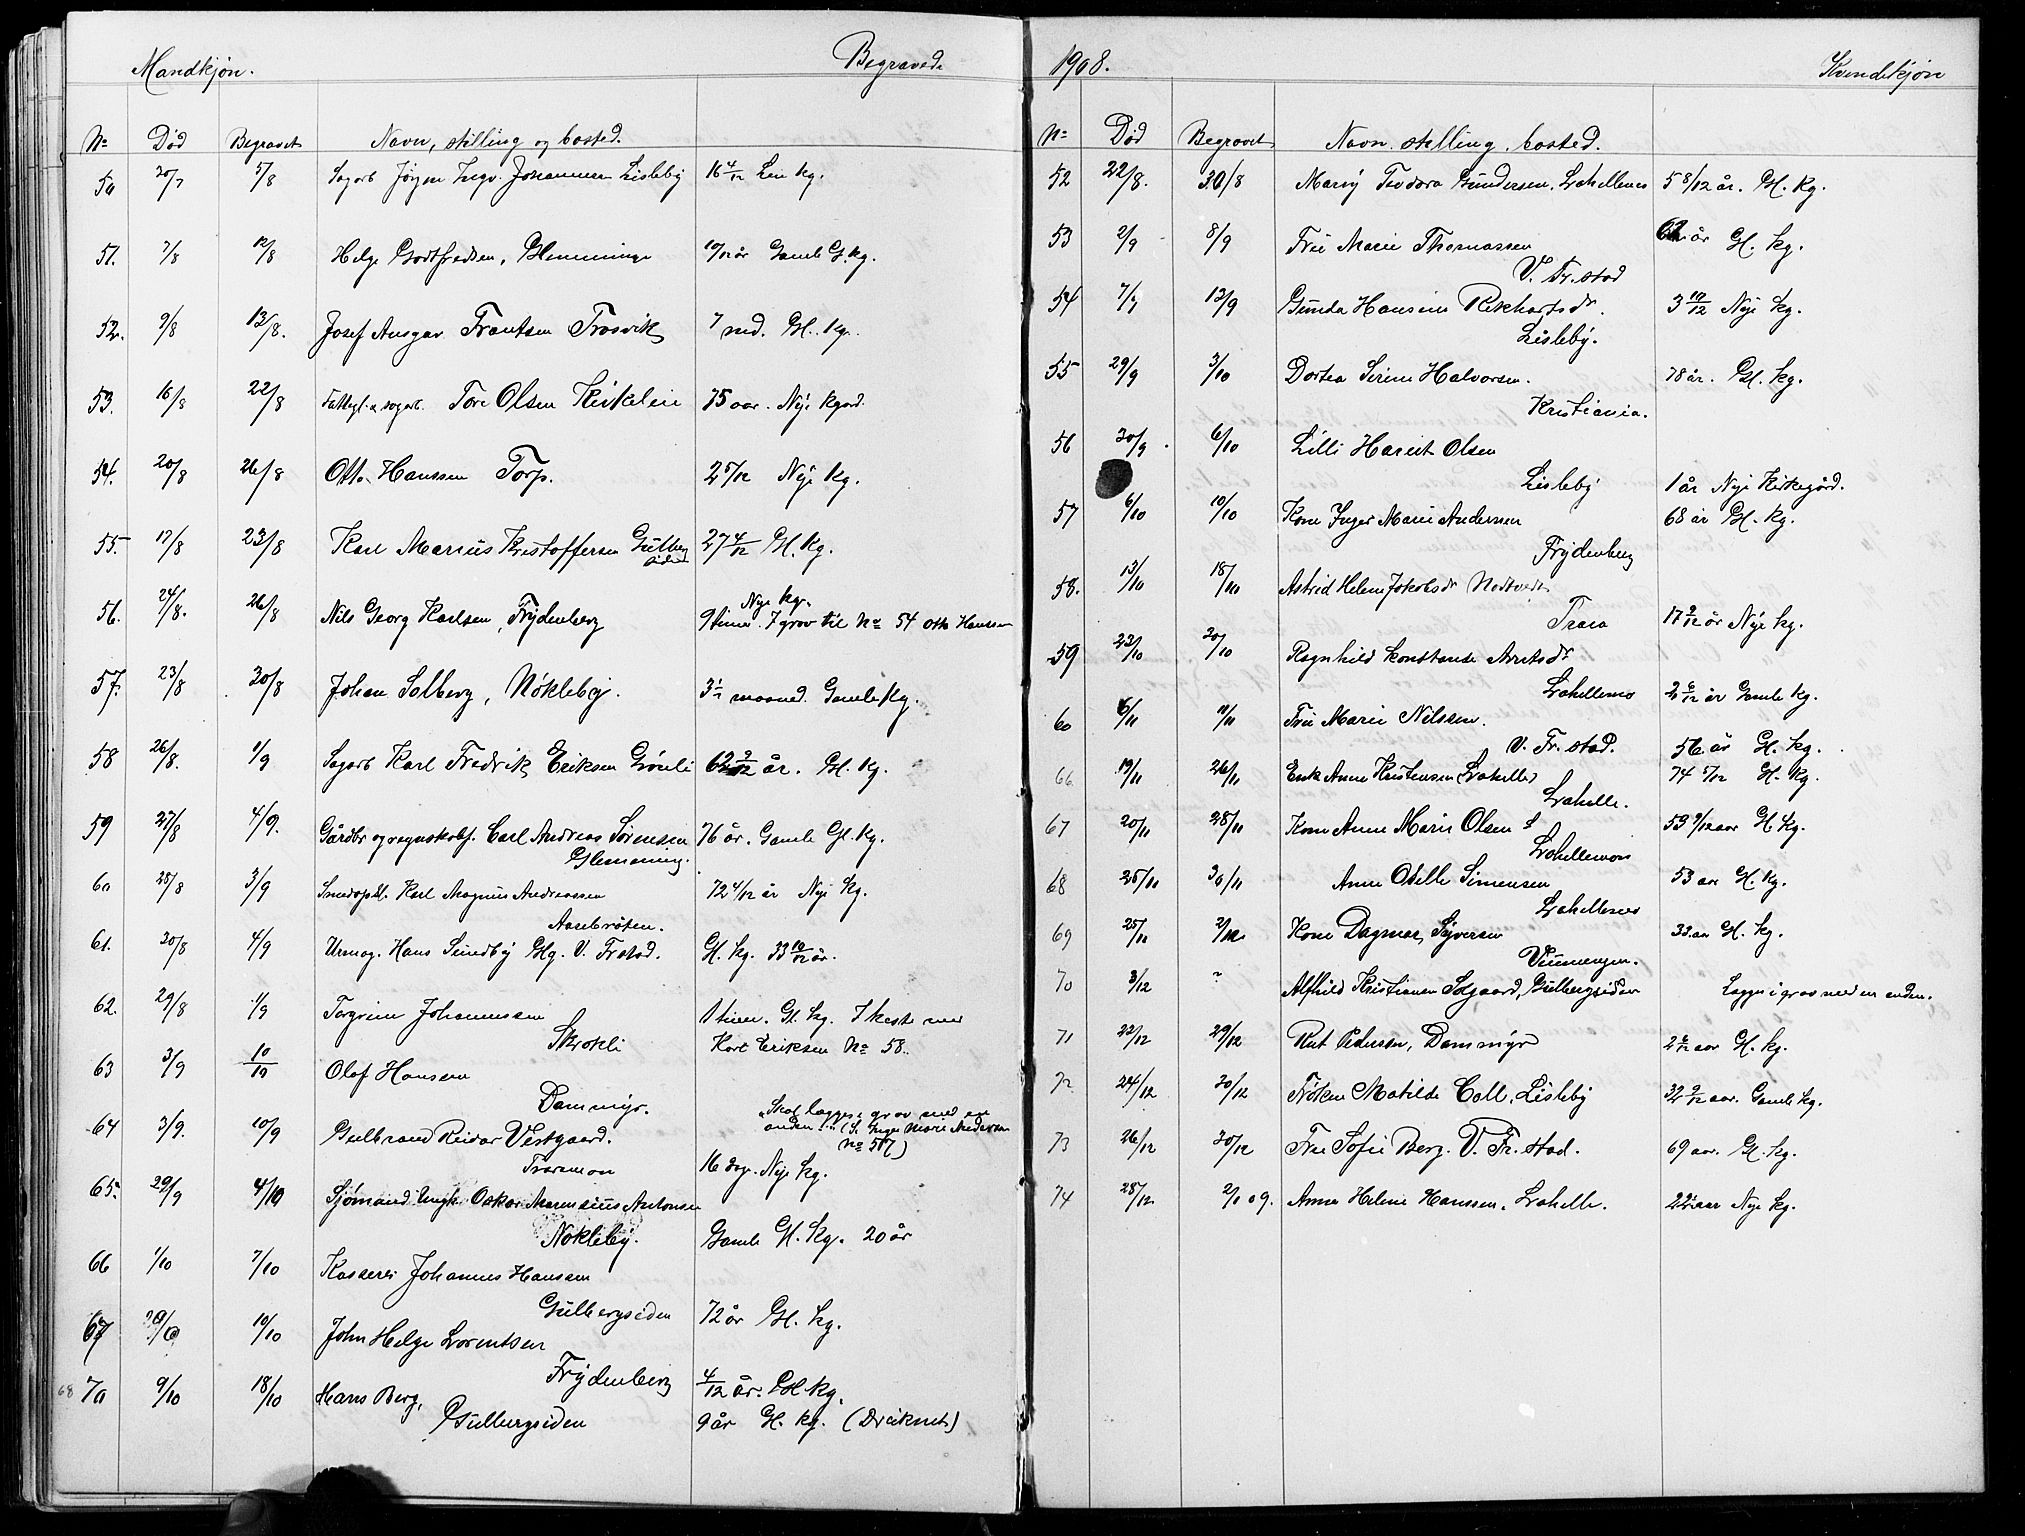 Mandkjøn. Begravede
No Død Begravet Navn, stilling og bosted.
50 20/7 5/8 Sagarb Jørgen Ingv. Johannesen Lisleby 16 4/12 Leie kg.
51. 7/8 12/8 Helge Godtfredsen, Glemminge 10/12 år Gamle G. kg.
52. 9/8 13/8. Josef Ansgar Frantsen Trosvik 7 md. Gl. kg.
53. 16/8 22/8 Fattigl. & sagarb. Tore Olsen Kirkeleie 75 aar. Nye kgård.
54. 20/8 26/8 Otto Hanssen Torp. 2 5/12 Nye kg.
55. 17/8 23/8 Karl Marius Kristoffersen Gulberg
siden 27 4/12 Gl. kg.
56. 24/8. 26/8 Nils Georg Karlsen, Frydenberg Nye kg.
9 timer. I grav til No 54 Otto Hanssen
57. 23/8 30/8 Johan Solberg, Nøkleby. 3 1/2 maaned. Gamle kg.
58 26/8. 1/9 Sagarb Karl Fredrik Eriksen Grønli 62 9/12 år. Gl. kg.
59 27/8 4/9. Gårdbr og regnskabsf. Carl Andreas Sørensen 76 år. Gamle Gl. kg.
Glemming.
60 28/8 3/9 Smedopkl. Karl Magnus Andreassen 72 4/12 år Nye kg.
Aasebråten.
61. 30/8 4/9 Urmag. Hans Sundby Gl. V. Frstad. Gl. kg. 33 10/12 år.
62. 29/8 1/9 Torgrim Johannesen 1 time. Gl. kg. I kiste med
Skrokli Karl Eriksen No 58.
63 3/9 10/10 Olaf Hansen
Dammyr.
64 3/9. 10/9 Gulbrand Reidar Vestgaard. "Skal lægges i grav med en
anden..." (S. Inger Marie Andersen
No 57)
Trosvikmoen 16 dage. Nye kg.
65. 29/9 4/10 Sjømand Ungk. Oskar Marensius Antonsen
Nøkleby. Gamle Gl. kg. 20 år
66 1/10 7/10 Kasserer Johannes Hansen
Gulbergsiden 72 år Gl. kg.
67 10/10 John Helge Lorentsen
Frydenberg 4/12 år. Gl. kg.
68 70 9/10 18/10 Hans Berg,
Gulbergsiden 9 år Gl. kg. (Druknet)
1908. Kvindekjøn
No Død Begravet Navn stilling, bosted.
52 22/8. 30/8 Mary Teodora Gundersen, Lahellemo 5 8/12 år. Gl. kg.
53 2/9 8/9 Frue Marie Thomassen 62 år Gl. kg.
V. Fr. stad
54 7/9 13/9 Gunda Hansine Rikhartsdr. 3 10/12 Nye kg.
Lisleby.
55 29/9 3/10 Dortea Sirine Halvorsen. 78 år. Gl. kg.
Kristiania.
56 30/9 6/10 Lilli Hariet Olsen
Lisleby 1 år Nye Kirkegård.
57 6/10 10/10 Kone Inger Marie Andersen 68 år Gl. kg.
Frydenberg
58. 13/10 18/10 Astrid Helene Jakobsdr Nodtvedt
Trara 17 9/12 år Nye kg.
59 23/10 30/10 Ragnhild Konstanse Arntsdr
Lahellemo 2 6/12 år Gamle kg.
60 6/11 11/11 Frue Marie Nilssen.
V. Fr. stad. 56 år Gl. kg.
66 19/11 26/11 Enke Anne Kristensen Lahelle, 74 5/12 Gl. kg.
Lahelle.
67 20/11 28/11 Kone Anne Marie Olsen 53 9/12 aar Gl kg.
Lahellemoen
68 25/11 30/11 Anne Odelle Simensen 53 aar Gl. kg.
Lahellemo
69 25/11 2/12 Kone Dagmar Syversen 33. aar Gl. kg.
Veumengen.
70 3/12 " Alfhild Kristiansen Solgaard, Gulbergsiden Lægges i grav med en anden.
71 22/12 29/12 Rut Pedersen, Dammyr 2 6/12 aar Gl. kg.
72 24/12 30/12 Frøken Matilde Coll, Lisleby 32 9/12 aar. Gamle kg.
73 26/12 30/12 Frue Sofie Berg. V. Fr. stad. 69 aar. Gl. kg.
74 28/12 2/1 09. Anna Helene Hanssen, Lahelle. 22 1/2 aar Nye kg.